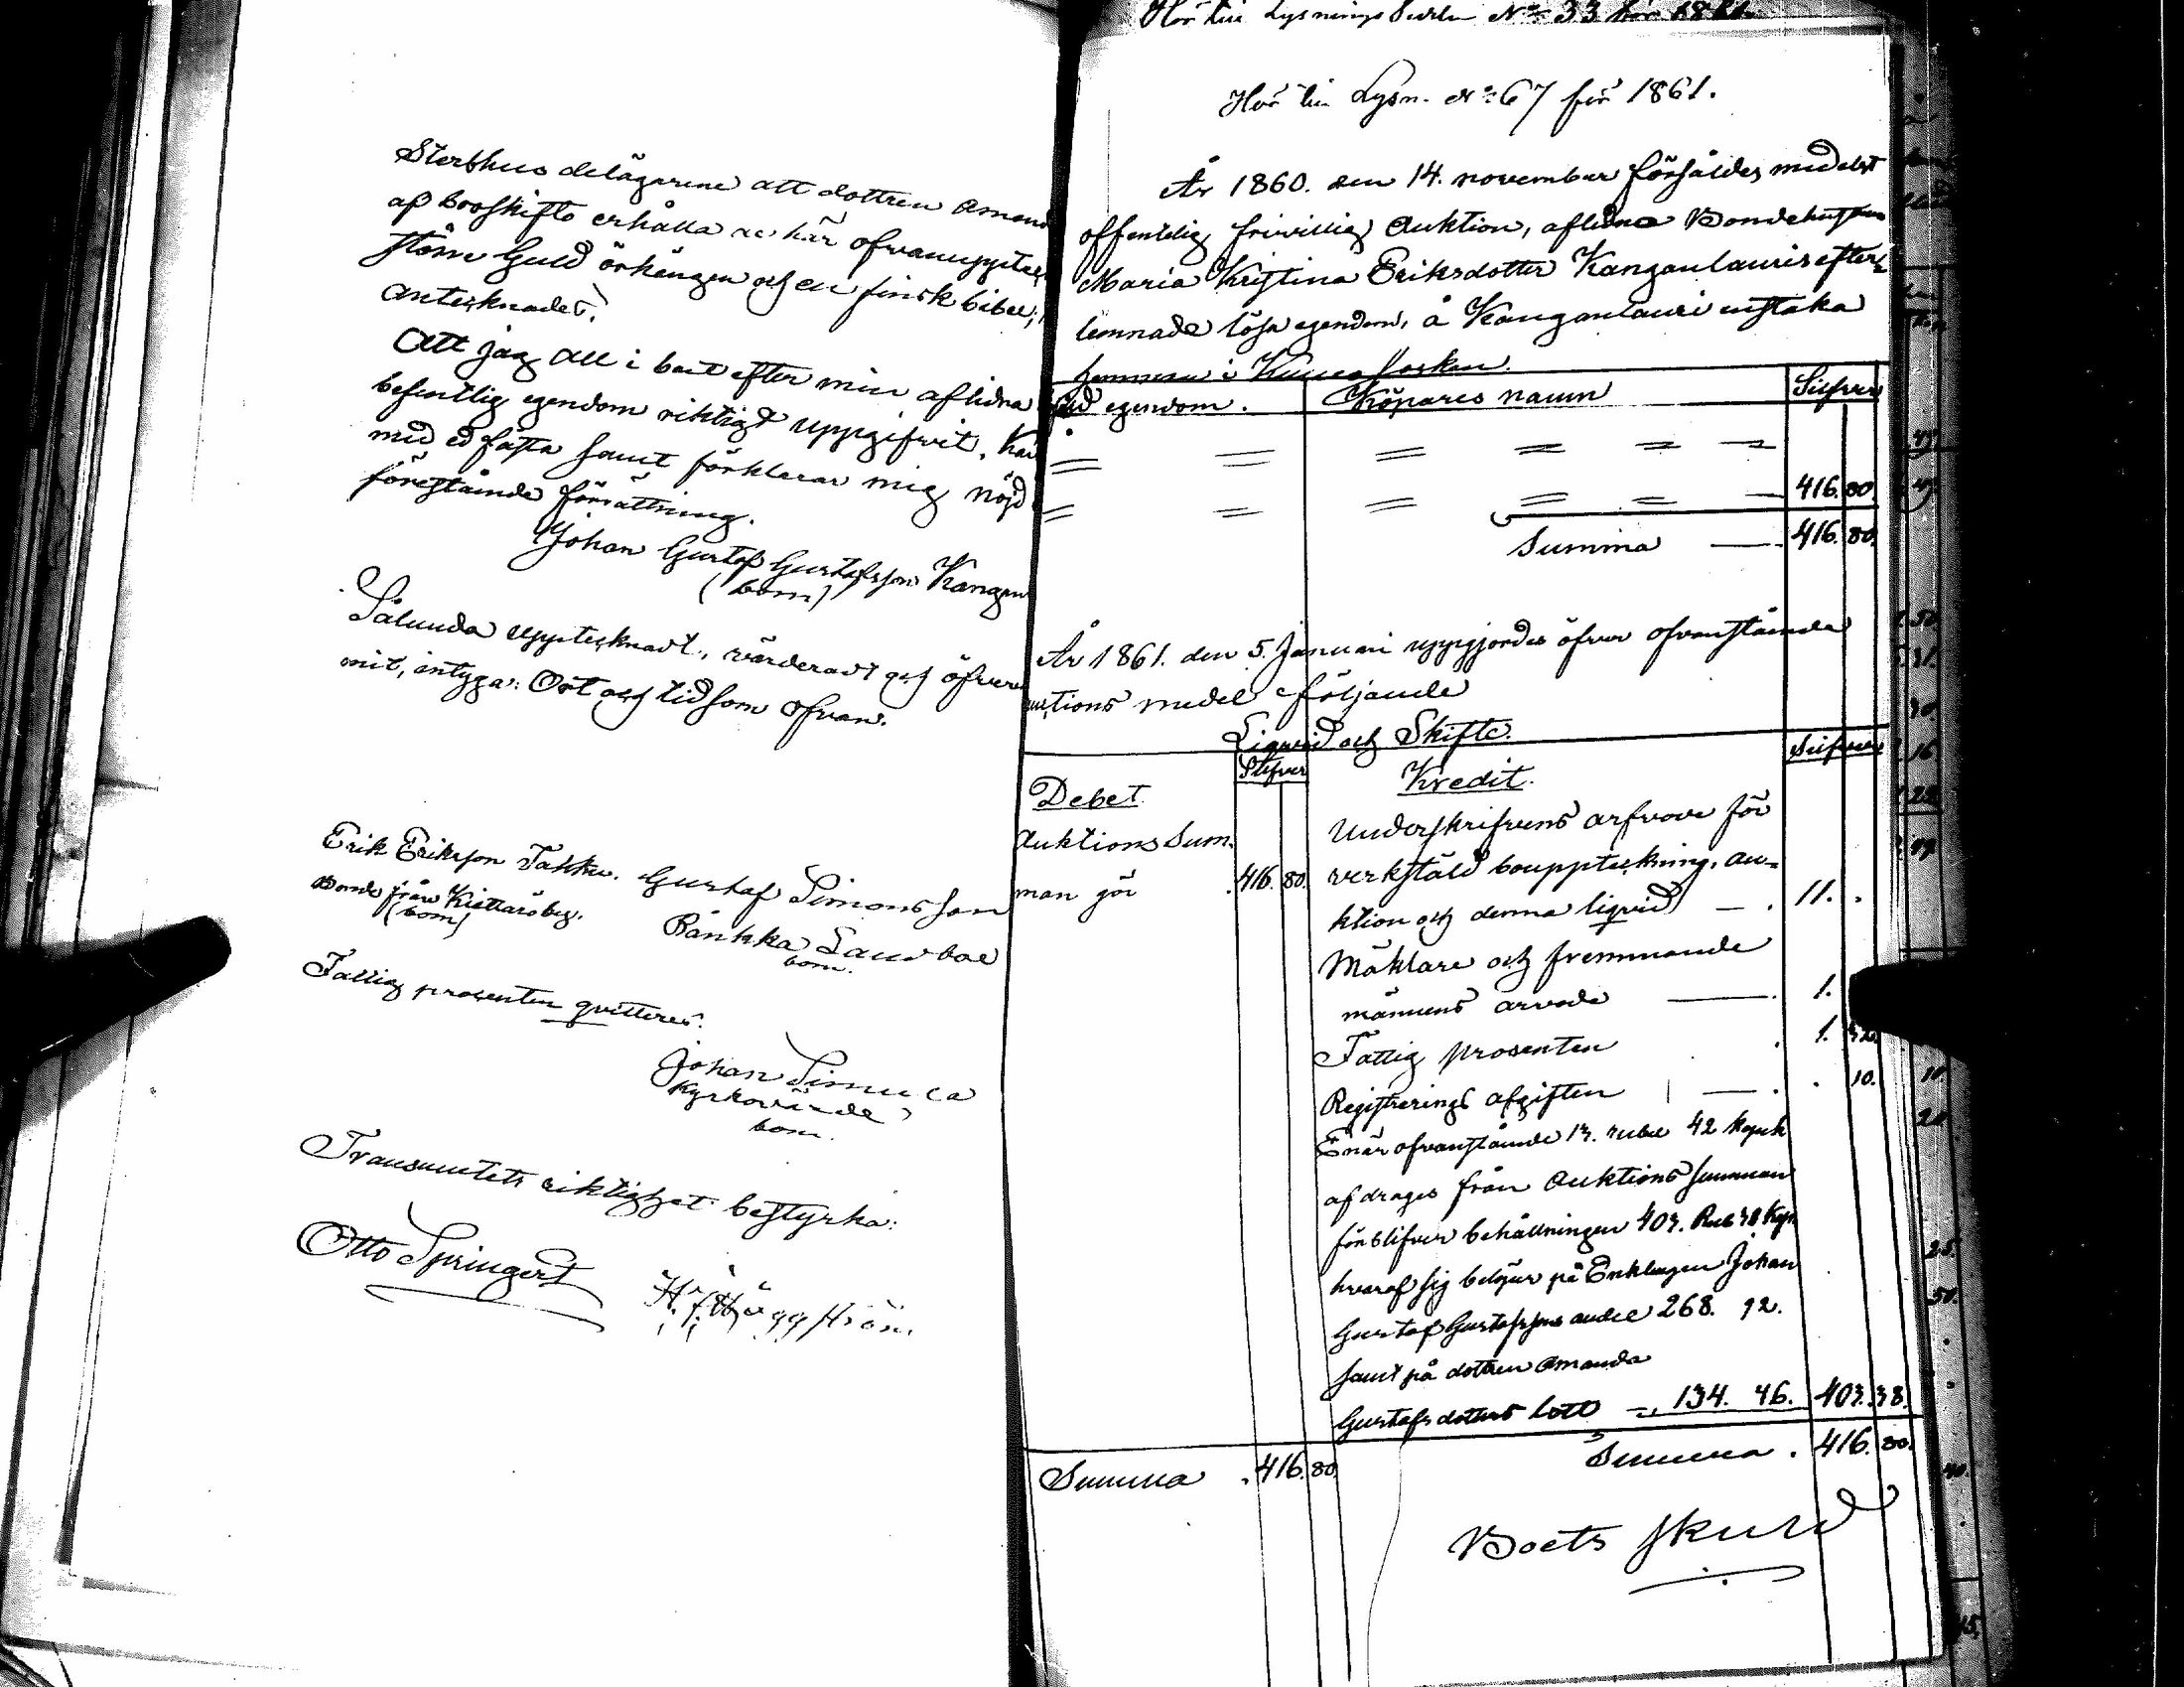 Sterbhus delägarene att dottren Amand
af booskifte erhålla de här ofvanuppteck
större Guld örhängen och en finsk bibel,
antecknades.
Att jag all i boet efter min aflidna
befintlig egendom riktigt uppgifvit, kan
med ed fästa samt förklarar mig nöjd
förestående förrättning.
Johan Gustaf Gustafsson Kangan
(bom)
Sålunda upptecknadt, värderadt och öfvere
mit, intyga: Ort och tid som ofvan.
Erik Eriksson Takku. Gustaf Simonsson
Bonde från Kiettarö by. Ränkka Landbo
(bom) bom.
Fattig prosenten qvitteras.
Johan Simula
Kyrkovärde
bom.
Transumtets riktighet bestyrka:
Otto Springert H. Häggström.
Hör till Lysnings N:o 33 för
Hör till Lysn. N:o 67 för 1861.
År 1860. den 14. november försåldes medelst
offentelig frivillig Auktion, aflidna Bondehustrun
Maria Kristina Eriksdotter Kanganlauris efter-
lemnade lösa egendom, å Kanganlauri enstaka
hemman i Kumo socken.
egendom. Köpares namn Silfver
= = = = = =
= = = = = — 416. 80.
Summa — 416. 80.
År 1861. den 5. Januari uppgjordes öfver ofvanstående
auktions medel följande
Liqvid och Skifte.
Silfver Silfver
Debet. Kredit.
Auktions Sum- Underskrifvens arfvode för
man gör . 416. 80. verkstäld bouppteckning, au-
ktion och denna liqvid — . 11. .
Mäklare och fremmande
männens arvode — . 1.
Fattig prosenten . 1. 32.
Registrerings afgiften — . . 10.
Enär ofvanstående 13. rubel 42 kopek
afdrages från Auktions summan
förblifver behållningen 403. Rub 38 Kop.
hvaraf sig belöper på Enklingen Johan
Gustaf Gustafssons andel 268. 92.
samt på dottren Amanda
Gustafsdotters lott — 134. 46. 403. 38.
Summa . 416. 80. Summa . 416. 80.
Boets skuld